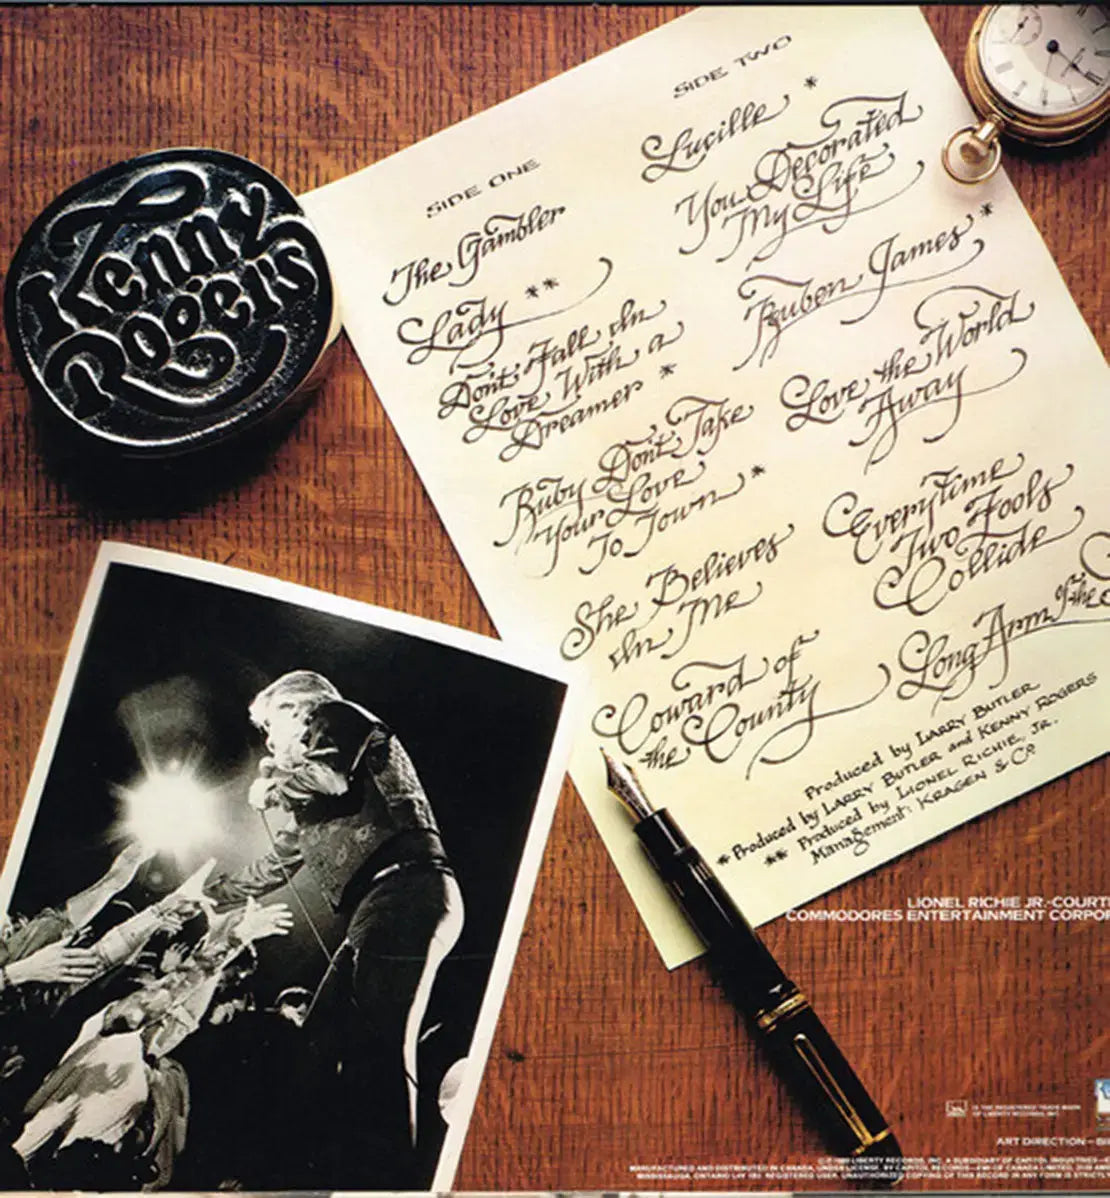 Kenny
Rogers
SIDE ONE
The Gambler
Lady **
Don't Fall In
Love With a
Dreamer *
Ruby Don't Take
Your Love
To Town *
She Believes
In Me
Coward of
the County
SIDE TWO
Lucille *
You Decorated
My Life
Ruben James *
Love the World
Away
Everytime
Two Fools
Collide
Long Arm of the
Produced by LARRY BUTLER
* Produced by LARRY BUTLER and KENNY ROGERS
** Produced by LIONEL RICHIE, JR.
Management: KRAGEN & Co
LIONEL RICHIE JR.-COURT
COMMODORES ENTERTAINMENT CORPOR
IS THE REGISTERED TRADE MARK
OF LIBERTY RECORDS, INC.
ART DIRECTION-BI
1980 LIBERTY RECORDS, INC. A SUBSIDIARY OF CAPITOL INDUSTRIES
MANUFACTURED AND DISTRIBUTED IN CANADA, UNDER LICENSE, BY CAPITOL RECORDS-EMI OF CANADA LIMITED,
MISSISSAUGA, ONTARIO REGISTERED USER. UNAUTHORIZED COPYING OF THIS RECORD IN ANY FORM IS STRICTLY